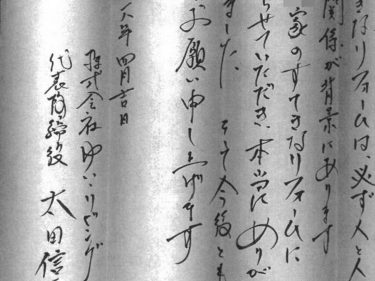 きなリフォームは、必ず人と人
関係が背景にあります
家のすてきなリフォームに
らせていただき、本当にありが
ました。そして今後とも
お願い申し上げます
八年四月吉日
株式会社ゆい・リビング
代表取締役 太田信